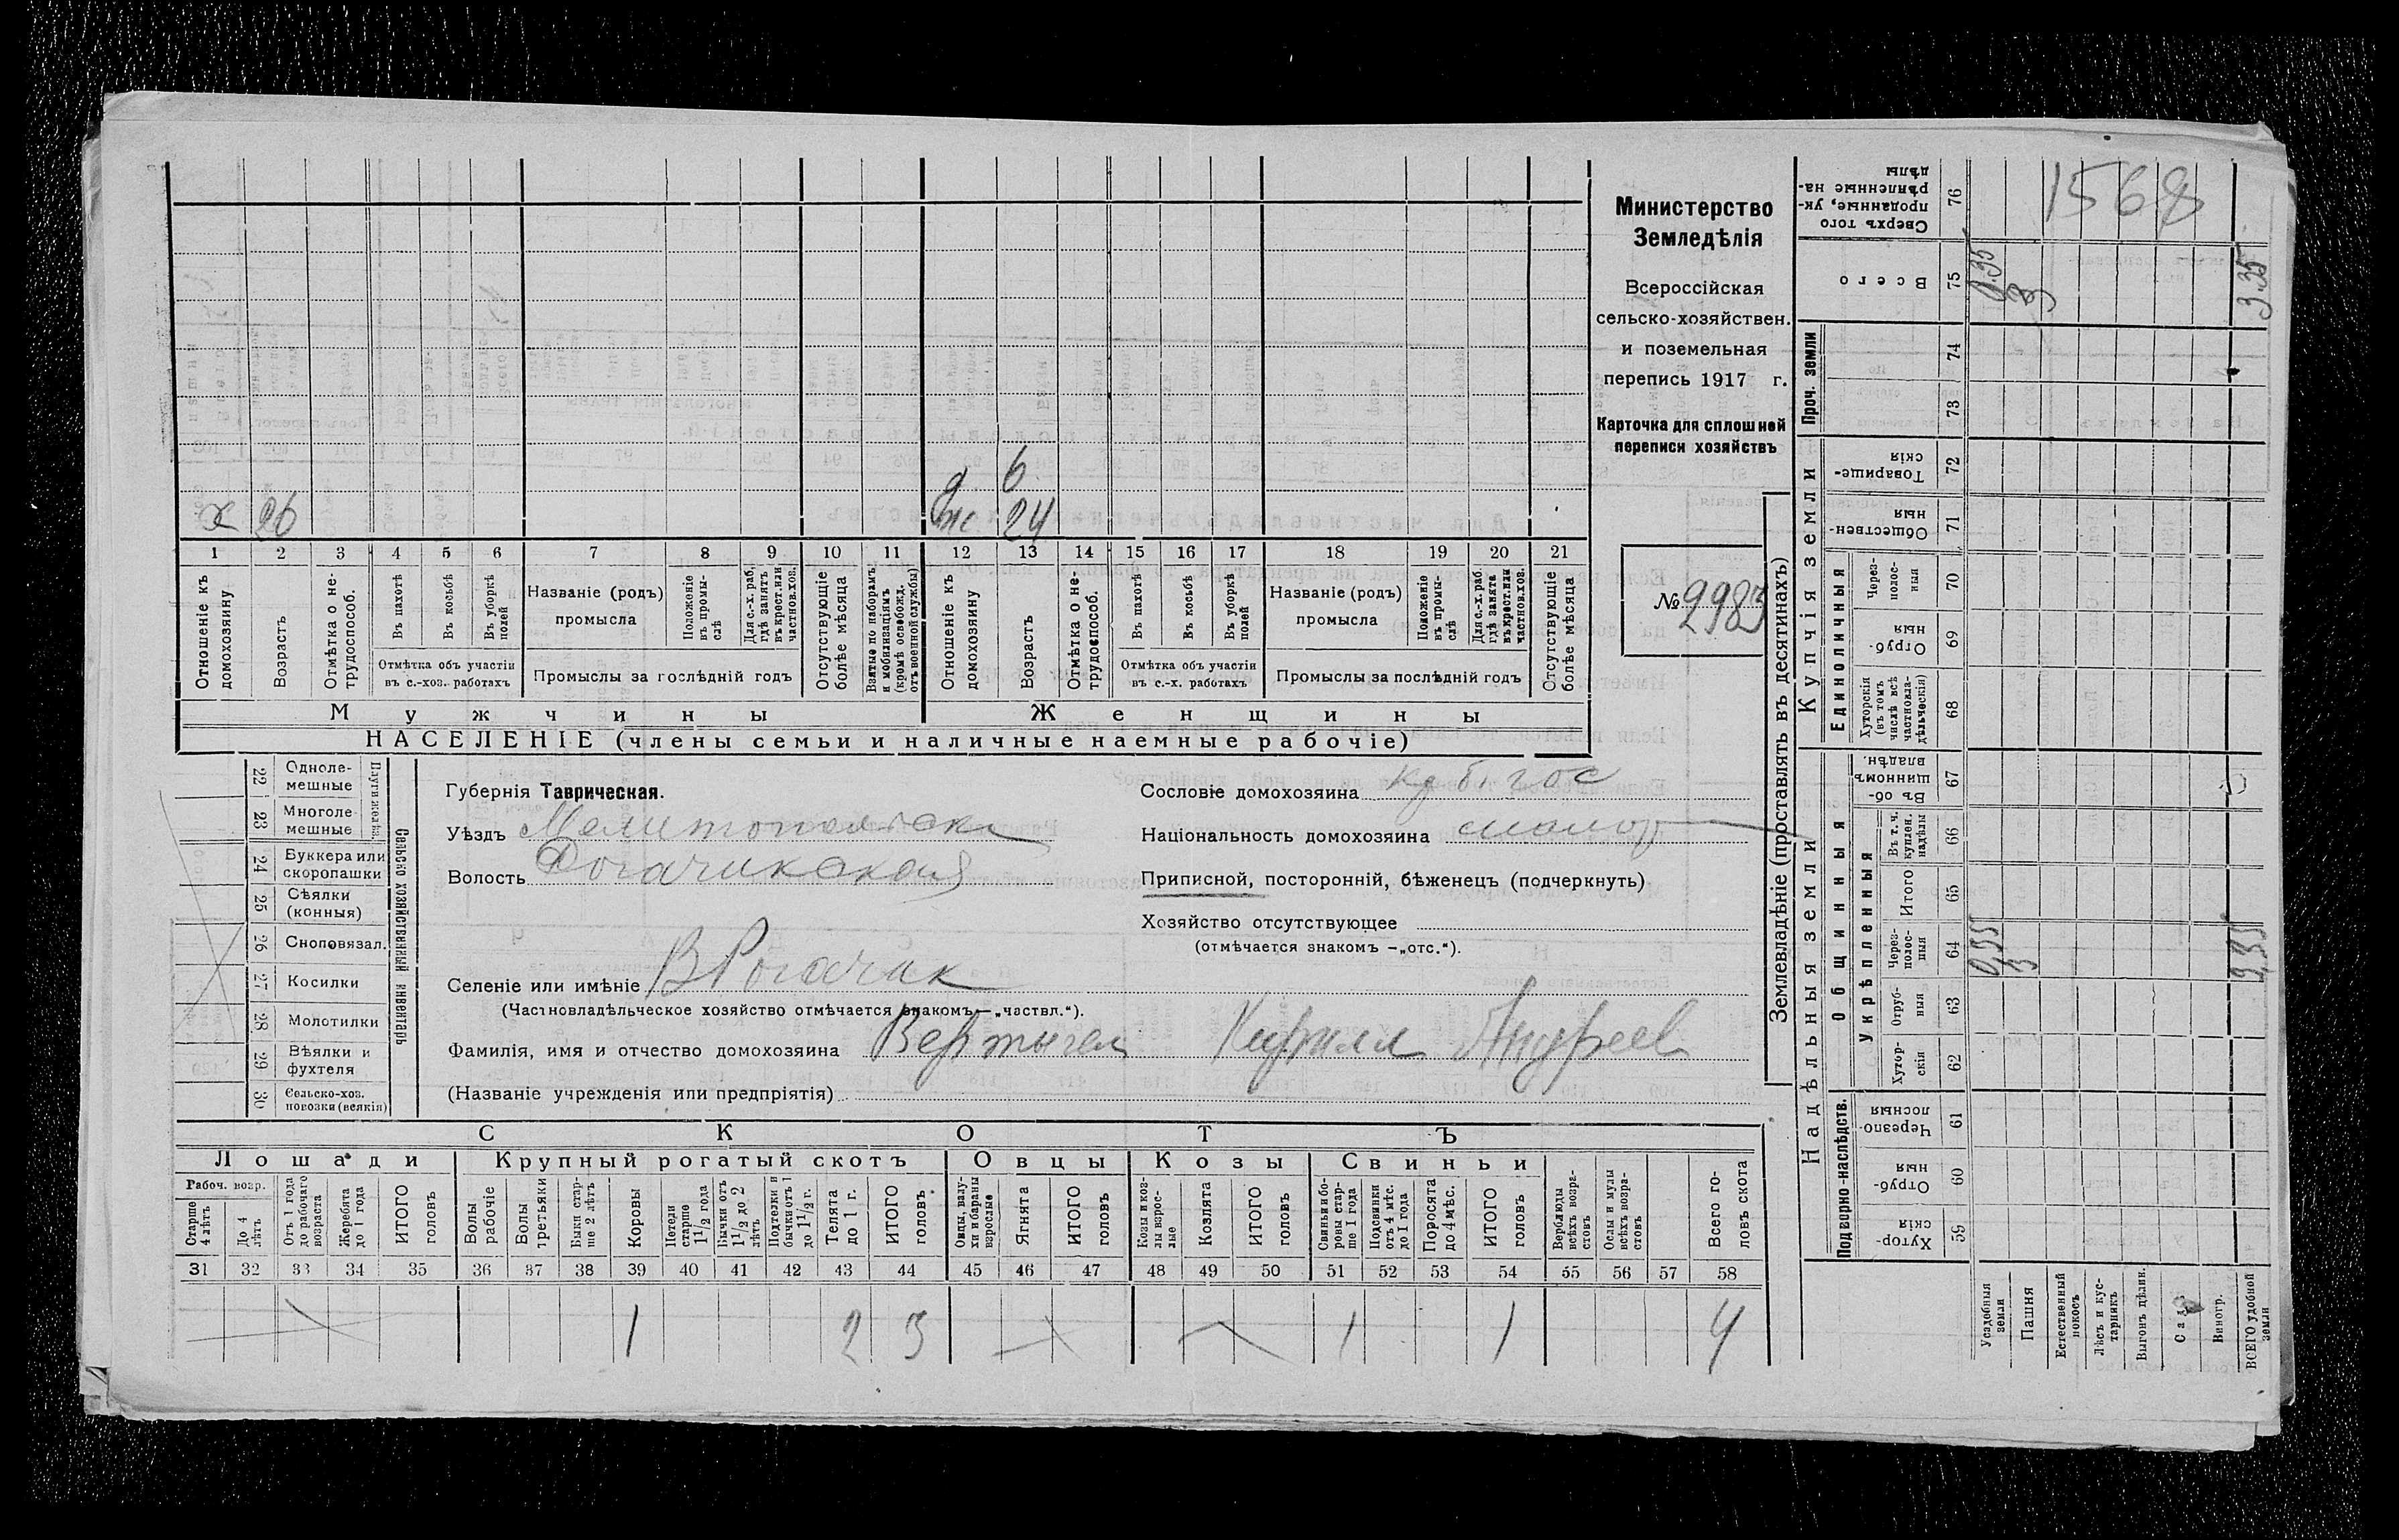 Министерство
Земледѣлія
Всероссійская
сельско-хозяйствен.
и поземельная
перепись 1917 г.
Карточка для сплошной
переписи хозяйствъ
№ 2983
1568
6
х 26 ж 24
1 2 3 4 5 6 7 8 9 10 11 12 13 14 15 16 17 18 19 20 21
Отношеніе къ домохозяину
Возрастъ
Отмѣтка о нетрудоспособ.
Въ пахотѣ
Въ косьбѣ
Въ уборкѣ полей
Отмѣтка объ участіи
въ с.-хоз. работахъ
Названіе (родъ)
промысла
Положеніе въ промыслѣ
Для с.-х. раб. гдѣ занятъ въ крест. или частнов. хоз.
Промыслы за послѣдній годъ
Отсутствующіе болѣе мѣсяца
Взятые по наборамъ и мобилизаціямъ (кромѣ освобожд. отъ военной службы)
Отношеніе къ домохозяину
Возрастъ
Отмѣтка о нетрудоспособ.
Въ пахотѣ
Въ косьбѣ
Въ уборкѣ полей
Отмѣтка объ участіи
въ с.-х. работахъ
Названіе (родъ)
промысла
Положеніе въ промыслѣ
Для с.-х. раб. гдѣ занята въ крест. или частнов. хоз.
Промыслы за послѣдній годъ
Отсутствующіе болѣе мѣсяца
Мужчины Женщины
НАСЕЛЕНІЕ (члены семьи и наличные наемные рабочіе)
Сельско хозяйственный инвентарь
22 Однолемешные
23 Многолемешные
24 Буккера или скоропашки
25 Сѣялки (конныя)
26 Сноповязал.
27 Косилки
28 Молотилки
29 Вѣялки и фухтеля
30 Сельско-хоз. повозки (всякія)
Губернія Таврическая.
Уѣздъ
Волость
Селеніе или имѣніе В Рогачик
(Частновладѣльческое хозяйство отмѣчается знакомъ—„частвл.“).
Фамилія, имя и отчество домохозяина Кирилл Андреев
(Названіе учрежденія или предпріятія)
Сословіе домохозяина
Національность домохозяина малор
Приписной, посторонній, бѣженецъ (подчеркнуть)
Хозяйство отсутствующее
(отмѣчается знакомъ —„отс.“).
СКОТЪ
Лошади Крупный рогатый скотъ Овцы Козы Свиньи
Рабоч. возр.
Старше 4 лѣтъ
До 4 лѣтъ
Отъ 1 года до рабочаго возраста
Жеребята до 1 года
ИТОГО головъ
Волы рабочіе
Волы третьяки
Быки старше 2 лѣтъ
Коровы
Нетели старше 1½ года
Бычки отъ 1½ до 2 лѣтъ
Подтелки и бычки отъ 1 до 1½ г.
Телята до 1 г.
ИТОГО головъ
Овцы, валухи и бараны взрослые
Ягнята
ИТОГО головъ
Козы и козлы взрослые
Козлята
ИТОГО головъ
Свиньи и боровы старше 1 года
Подсвинки отъ 4 мѣс. до 1 года
Поросята до 4 мѣс.
ИТОГО головъ
Верблюды всѣхъ возрастовъ
Ослы и мулы всѣхъ возрастовъ
Всего головъ скота
31 32 33 34 35 36 37 38 39 40 41 42 43 44 45 46 47 48 49 50 51 52 53 54 55 56 57 58
1 2 3 1 1 4
Землевладѣніе (проставлять въ десятинахъ)
Надѣльныя земли Купчія земли Проч. земли
Подворно-наслѣдств.
Общинныя
Укрѣпленныя
Единоличныя
Хуторскія 59
Отрубныя 60
Черезполосныя 61
Хуторскія 62
Отрубныя 63
Черезполосныя 64
Итого 65
Въ т. ч. куплен. надѣлы 66
Въ общинномъ владѣн. 67
Хуторскія (въ томъ числѣ всѣ частновладѣльческія) 68
Отрубныя 69
Черезполосныя 70
Общественныя 71
Товарищескія 72
73
74
Всего 75
Сверхъ того проданные, укрѣпленные надѣлы 76
Усадебныя земли 0,35 0.35
Пашня 3 3
Естественный покосъ
Лѣсъ и кустарникъ
Выгонъ цѣлин.
Садъ
Виногр.
ВСЕГО удобной земли 3,35 3.35